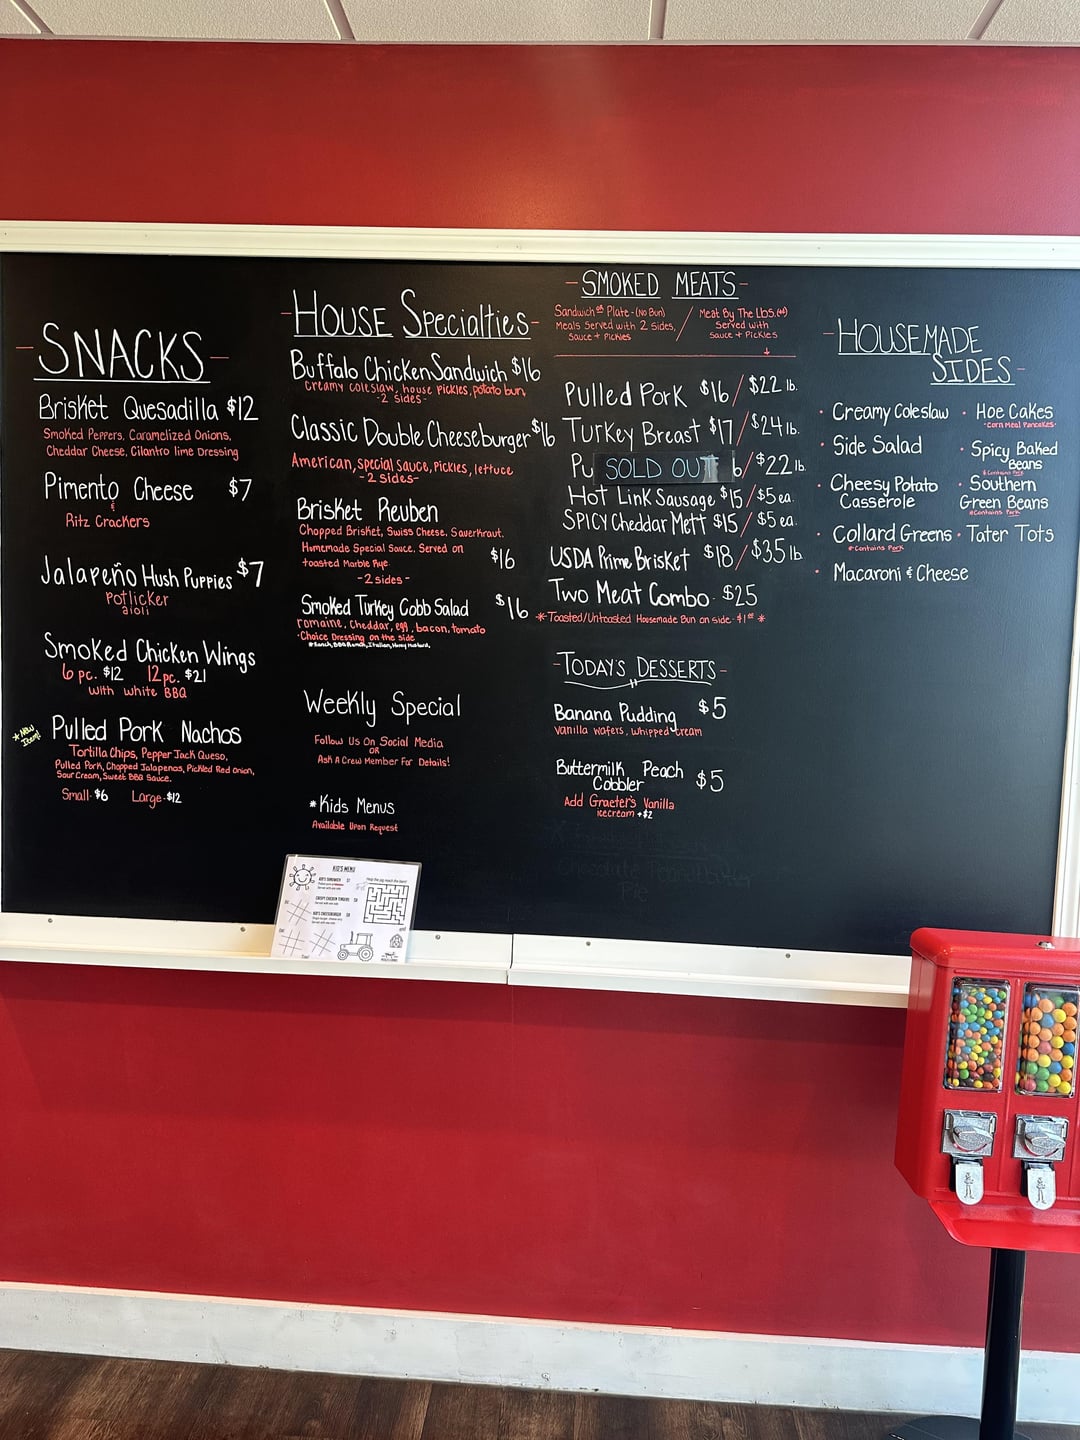 SNACKS
Brisket Quesadilla $12
Smoked Peppers, Caramelized Onions,
Cheddar Cheese, Cilantro lime Dressing
Pimento Cheese $7
&
Ritz Crackers
Jalapeño Hush Puppies $7
Potlicker
aioli
Smoked Chicken Wings
6 pc. $12 12pc. $21
with white BBQ
*New Item! Pulled Pork Nachos
Tortilla Chips, Pepper Jack Queso,
Pulled Pork, Chopped Jalapenos, Pickled Red onion,
Sour Cream, Sweet BBQ Sauce.
Small- $6 Large-$12
-House Specialties-
Buffalo Chicken Sandwich $16
Creamy coleslaw, house pickles, potato bun,
-2 sides-
Classic Double Cheeseburger $16
American, special sauce, pickles, lettuce
-2 sides-
Brisket Reuben
Chopped Brisket, Swiss Cheese, Sauerkraut.
Homemade Special Sauce. Served on
toasted Marble Rye $16
-2 sides-
Smoked Turkey Cobb Salad $16
romaine, Cheddar, egg, bacon, tomato
Choice Dressing on the side
*Ranch, BBQ Ranch, Italian, Honey Mustard.
Weekly Special
Follow Us On Social Media
OR
Ask A Crew Member For Details!
*Kids Menus
Available Upon Request
KID'S MENU
-SMOKED MEATS-
Sandwich or Plate-(No Bun)
Meals Served with 2 Sides,
Sauce + Pickles
/
Meat By The Lbs.
Served with
Sauce + Pickles
Pulled Pork $16/$22 lb.
Turkey Breast $17/$24 lb.
Pu SOLD OUT 6/$22 lb.
Hot Link Sausage $15/$5 ea.
SPICY Cheddar Mett $15/$5 ea.
USDA Prime Brisket $18/$35 lb
Two Meat Combo- $25
*Toasted/Untoasted Housemade Bun on side- $1.00 *
-TODAY'S DESSERTS-
Banana Pudding $5
Vanilla Wafers, Whipped Cream
Buttermilk Peach
Cobbler $5
Add Graeter's Vanilla
icecream +$2
-HOUSEMADE
SIDES-
· Creamy Coleslaw
· Side Salad
· Cheesy Potato
Casserole
· Collard Greens
*Contains Pork
· Macaroni & Cheese
· Hoe Cakes
-Corn Meal Pancakes-
· Spicy Baked
Beans
*Contains Pork
· Southern
Green Beans
*Contains Pork
· Tater Tots